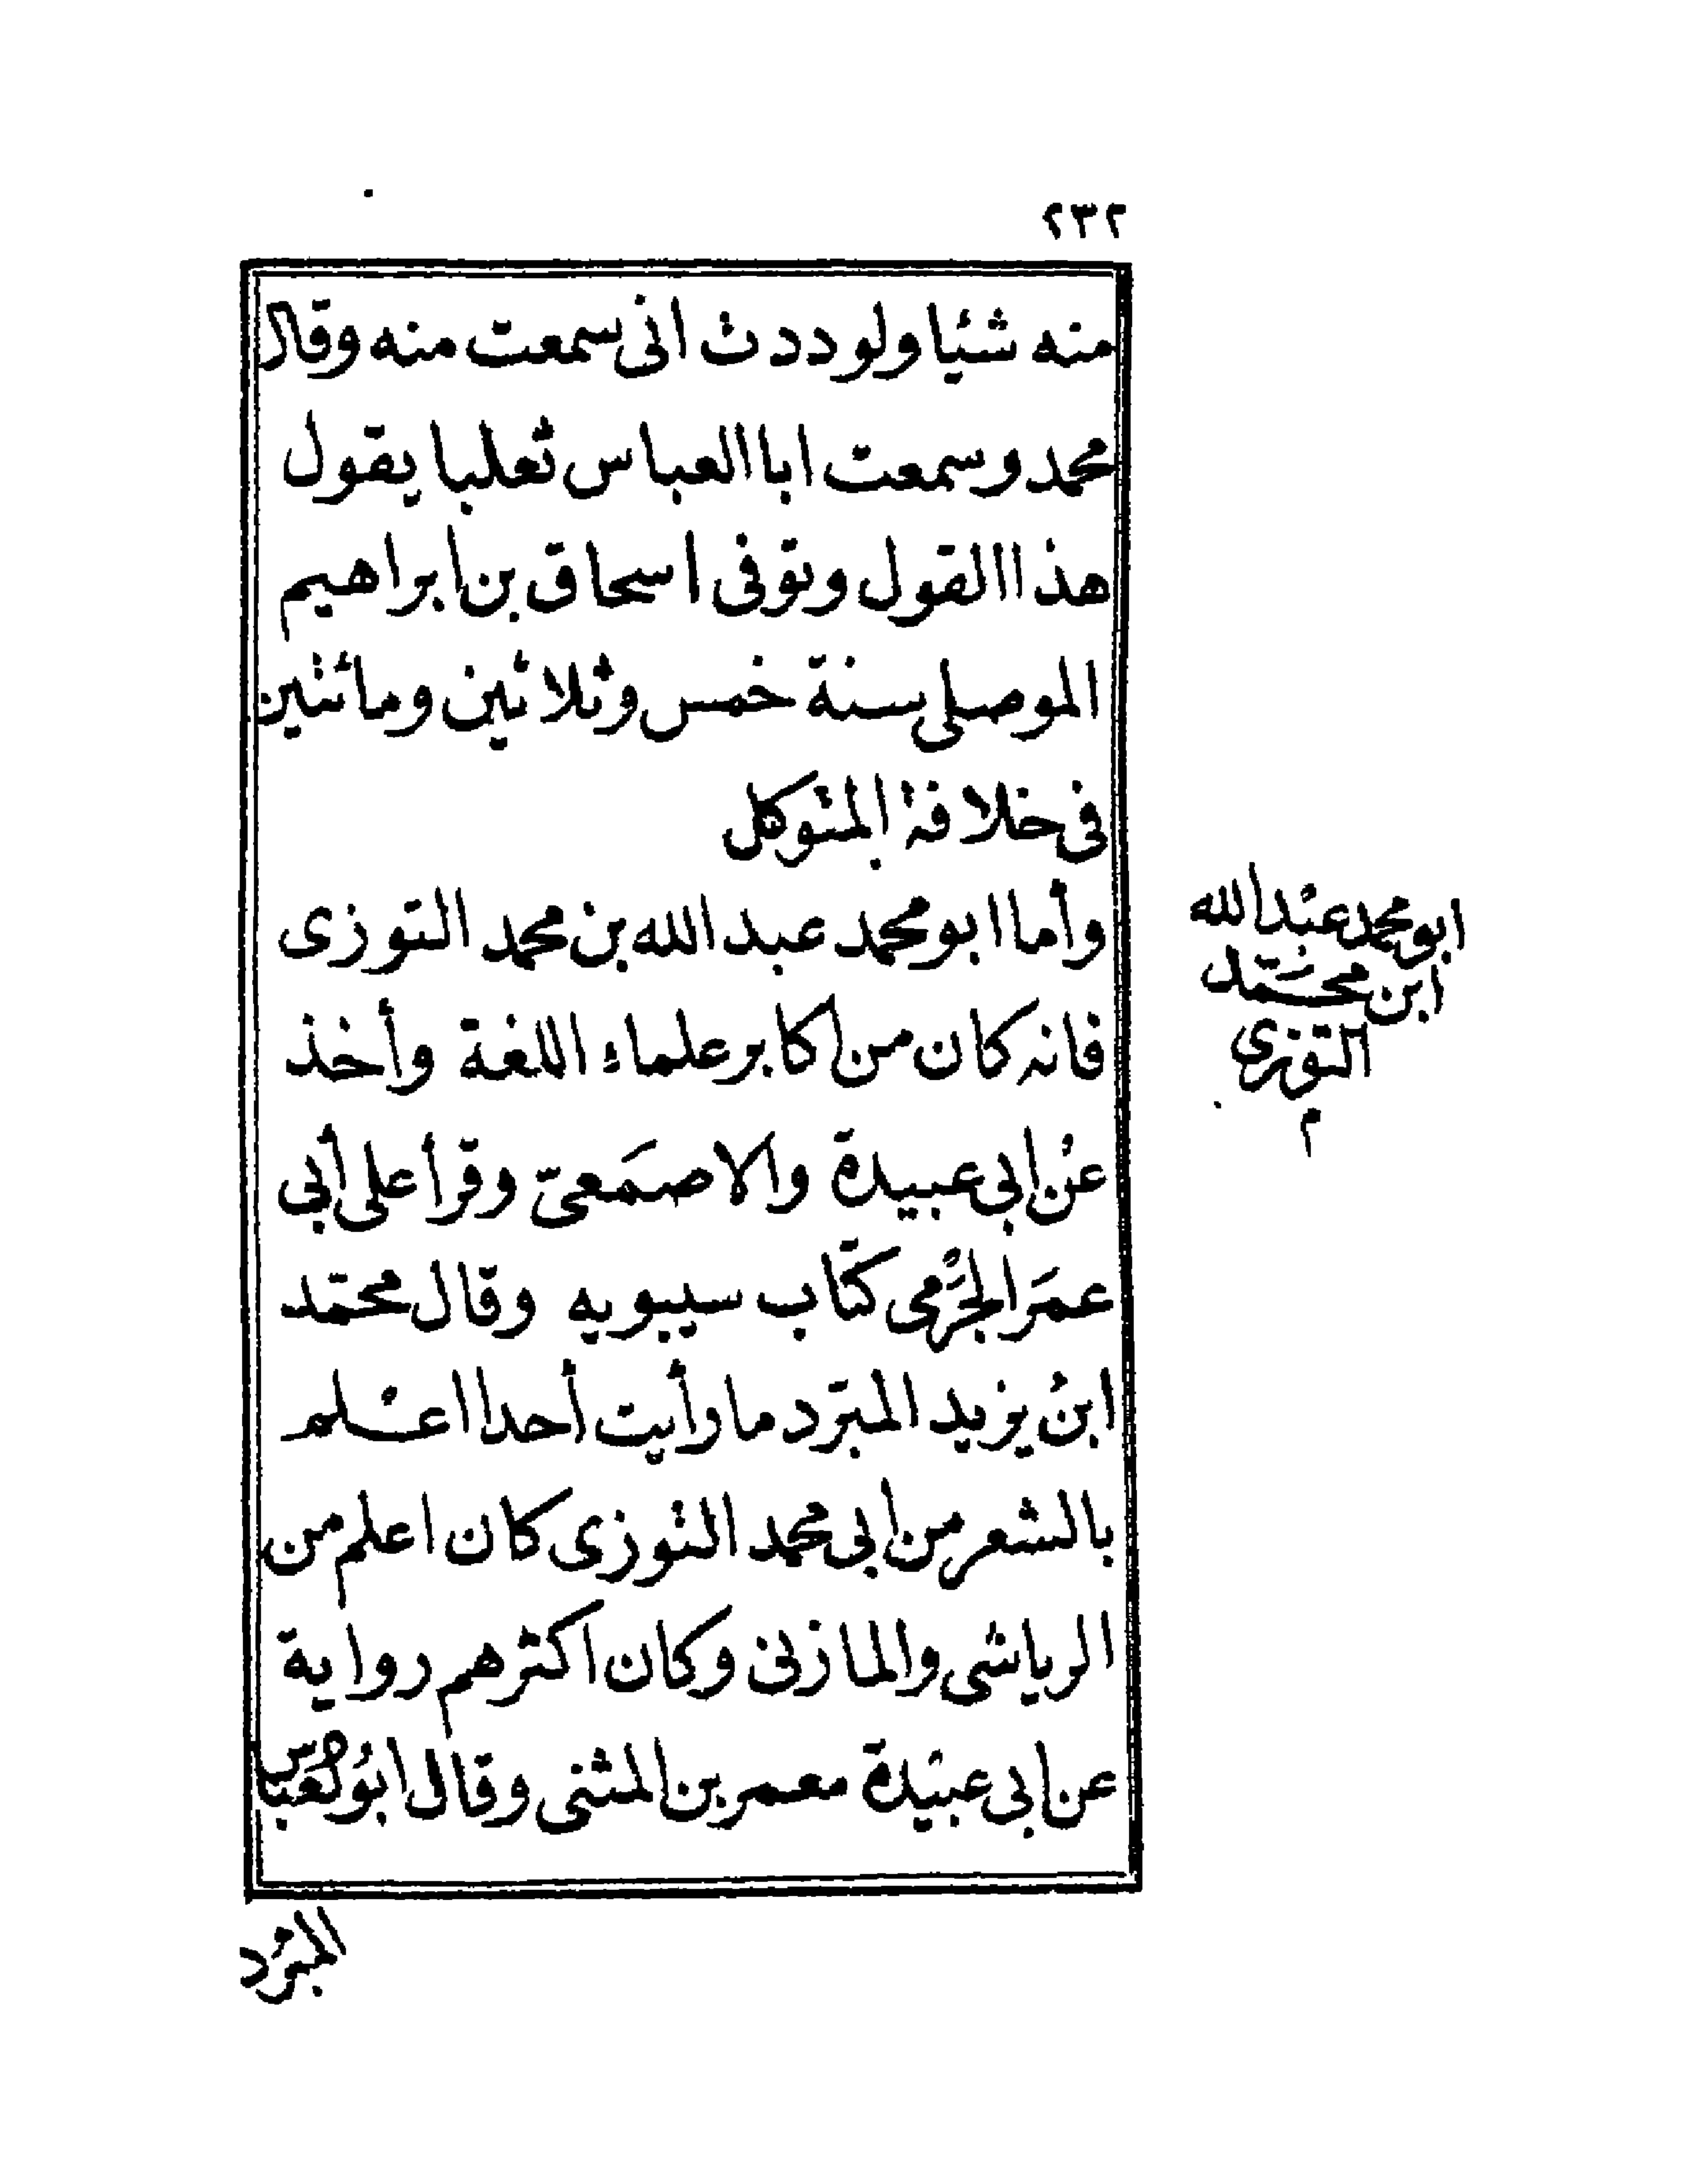 ٢٣٢
منه شئيا ولو ددت انى سمعت منه وقال
محمد وسمعت ابا العباس ثعلبا يقول
هذا القول وتوفى اسحاق بن ابراهيم
الموصلى سنة خمس وثلاثين ومائتين
فى خلافة المتوكل
وأما ابو محمد عبد الله بن محمد التوزى
فانه كان من اكابر علماء اللغة وأخذ
عن ابى عبيدة والاصمَعىّ وقرأ على أبى
عمَر الجَرْمى كتاب سيبويه وقال محمّد
ابن يزيد المبرّد ما رأيت أحدا اعلم
بالشعر من ابى محمد التوزى كان اعلم من
الرياشى والمازنى وكان اكثرهم رواية
عن ابى عبيدة معمر بن المثنى وقال ابو العباس
المبرد
ابو محمد عبد الله
ابن محمّد
التوزى
م